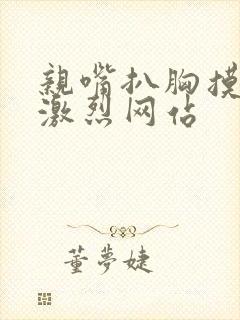 親嘴扒胸摸
激烈网站
董夢婕